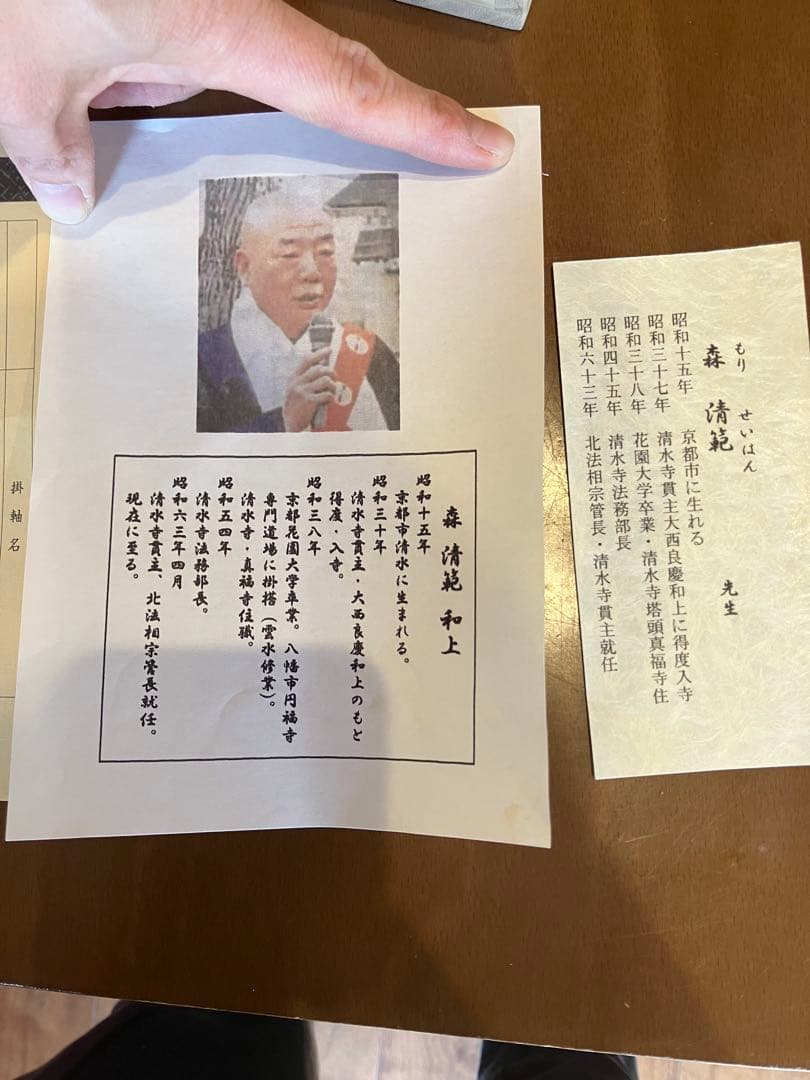 森 清範 和上
昭和十五年
京都市清水に生まれる。
昭和三十年
清水寺貫主・大西良慶和上のもと
得度・入寺。
昭和三八年
京都花園大学卒業。八幡市円福寺
専門道場に掛搭(雲水修業)。
清水寺・真福寺住職。
昭和五四年
清水寺法務部長。
昭和六三年四月
清水寺貫主、北法相宗管長就任。
現在に至る。
掛軸名
もり せいはん
森 清範 先生
昭和十五年 京都市に生れる
昭和三十七年 清水寺貫主大西良慶和上に得度入寺
昭和三十八年 花園大学卒業・清水寺塔頭真福寺住
昭和四十五年 清水寺法務部長
昭和六十三年 北法相宗管長・清水寺貫主就任